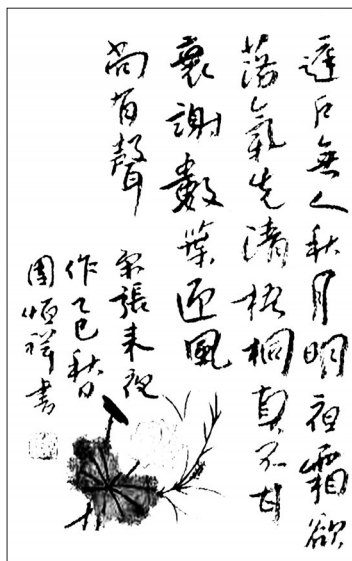 庭戶無人秋月明夜霜欲
落氣先清梧桐真不甘
衰謝數葉迎風
尚有聲
宋張耒夜
作乙巳秋日
祥書